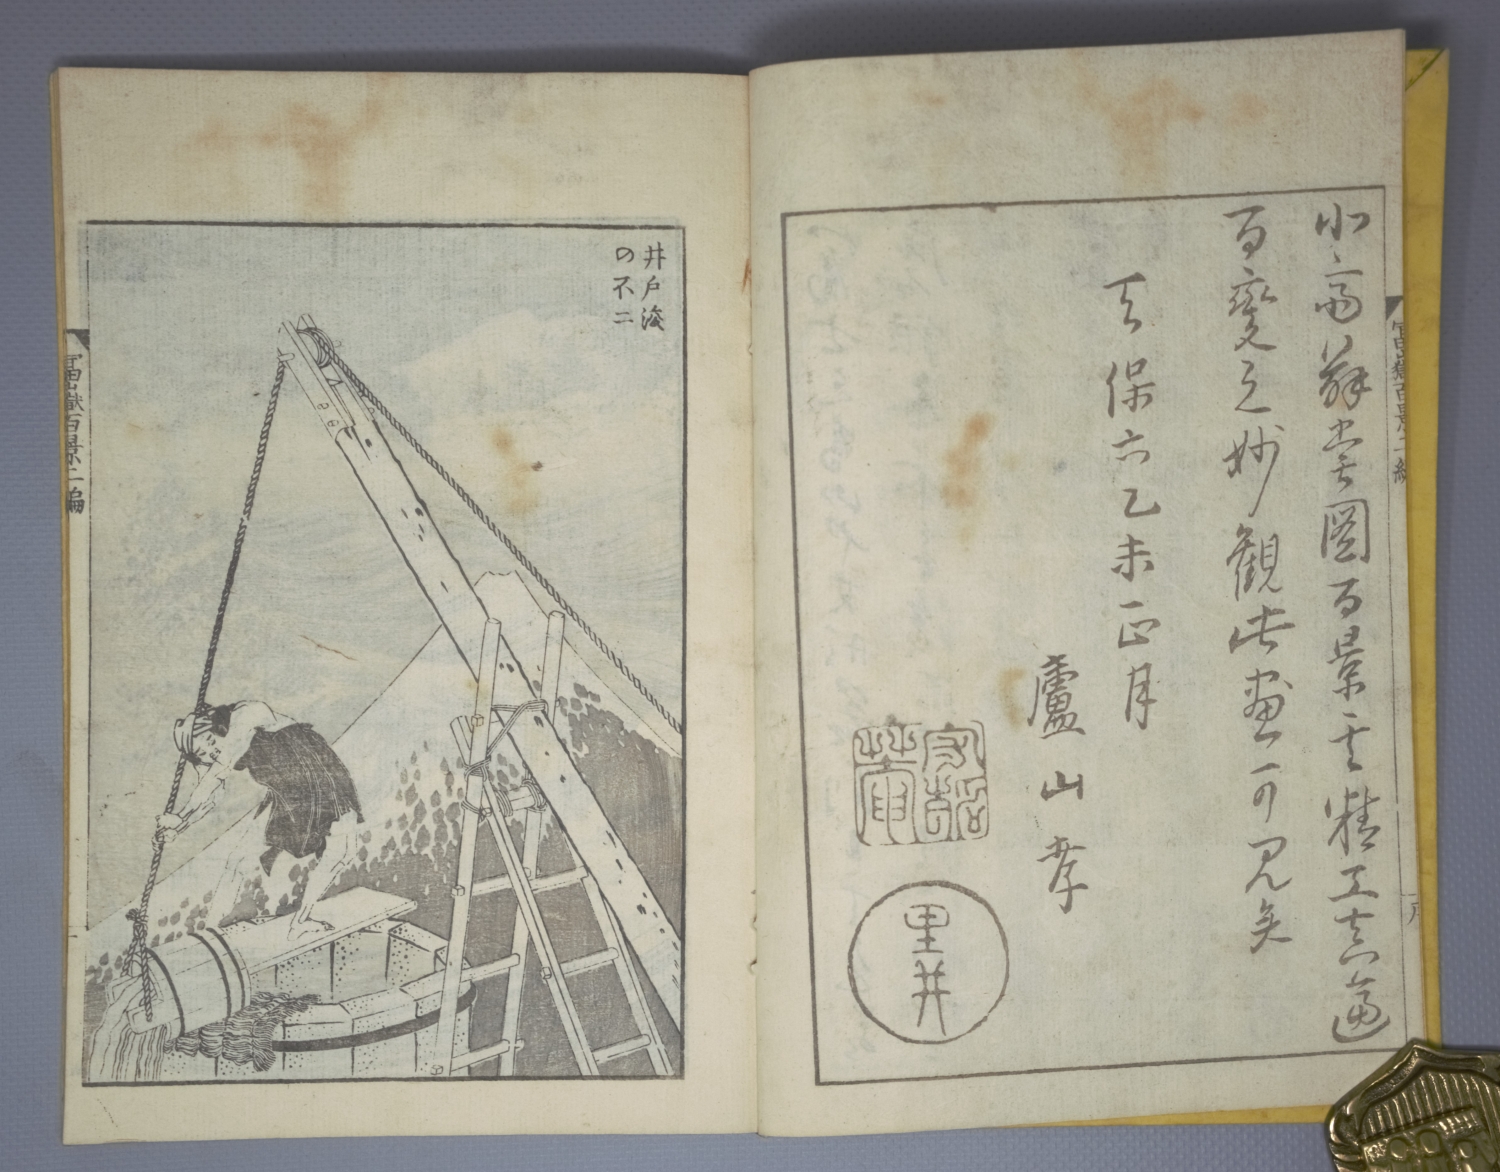 富嶽百景二編
序
図百景其精工
百変之妙観此画可見矣
天保六乙未正月
廬山孝
里井
井戸浚
の不二
富嶽百景二編